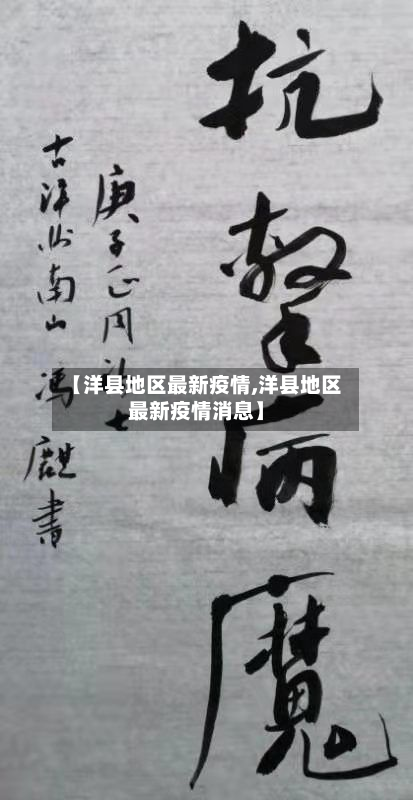 抗擊病魔
庚子正月
古洋州南山冯麒書
【洋县地区最新疫情,洋县地区
最新疫情消息】